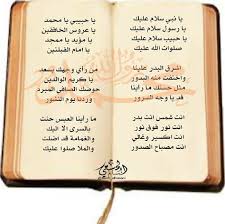 يا نبي سلام عليك
يا رسول سلام عليك
يا حبيب سلام عليك
صلوات الله عليك
اشرق البدر علينا
واختفت منه البدور
مثل حسنك ما رأينا
قط يا وجه السرور
انت شمس انت بدر
انت نور فوق نور
انت اكسير وغالي
انت مصباح الصدور
يا حبيبي يا محمد
يا عروس الخافقين
يا مؤيد يا ممجد
يا امام القبلتين
من رأى وجهك يسعد
يا كريم الوالدين
حوضك الصافي المبرد
وردنا يوم النشور
ما رأينا العيس حنت
بالسرى الا اليك
والغمامة قد اظلت
والملا صلوا عليك